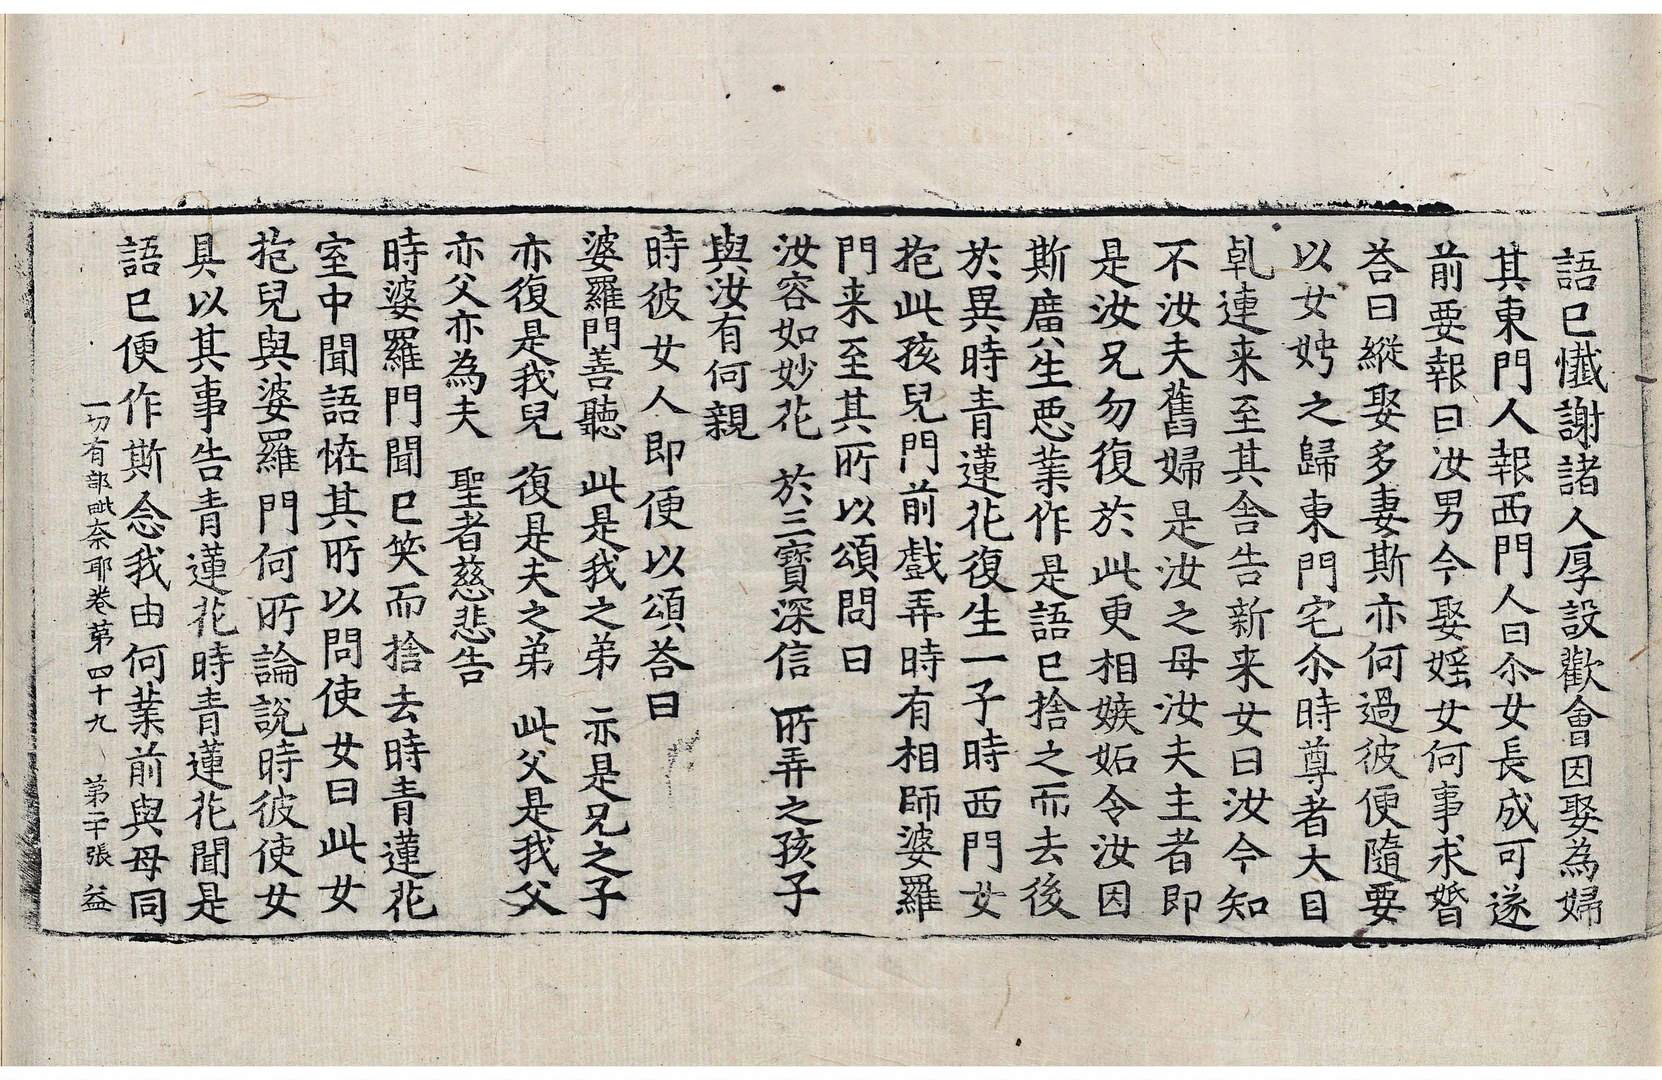 語已懴謝諸人厚設歡會因娶為婦
其東門人報西門人曰尒女長成可遂
前要報曰汝男今娶婬女何事求婚
荅曰縱娶多妻斯亦何過彼便隨要
以女娉之歸東門宅尒時尊者大目
乹連来至其舍告新来女曰汝今知
不汝夫舊婦是汝之母汝夫主者即
是汝兄勿復於此更相嫉妬令汝因
斯廣生惡業作是語已捨之而去後
於異時青蓮花復生一子時西門女
抱此孩兒門前戲弄時有相師婆羅
門来至其所以頌問曰
汝容如妙花　於三寶深信　所弄之孩子
與汝有何親
時彼女人即便以頌荅曰
婆羅門善聽　此是我之弟　亦是兄之子
亦復是我兒　復是夫之弟　此父是我父
亦父亦為夫　聖者慈悲告
時婆羅門聞已笑而捨去時青蓮花
室中聞語恠其所以問使女曰此女
抱兒與婆羅門何所論說時彼使女
具以其事告青蓮花時青蓮花聞是
語已便作斯念我由何業前與母同
一切有部毗奈耶卷苐四十九　第二十張　益